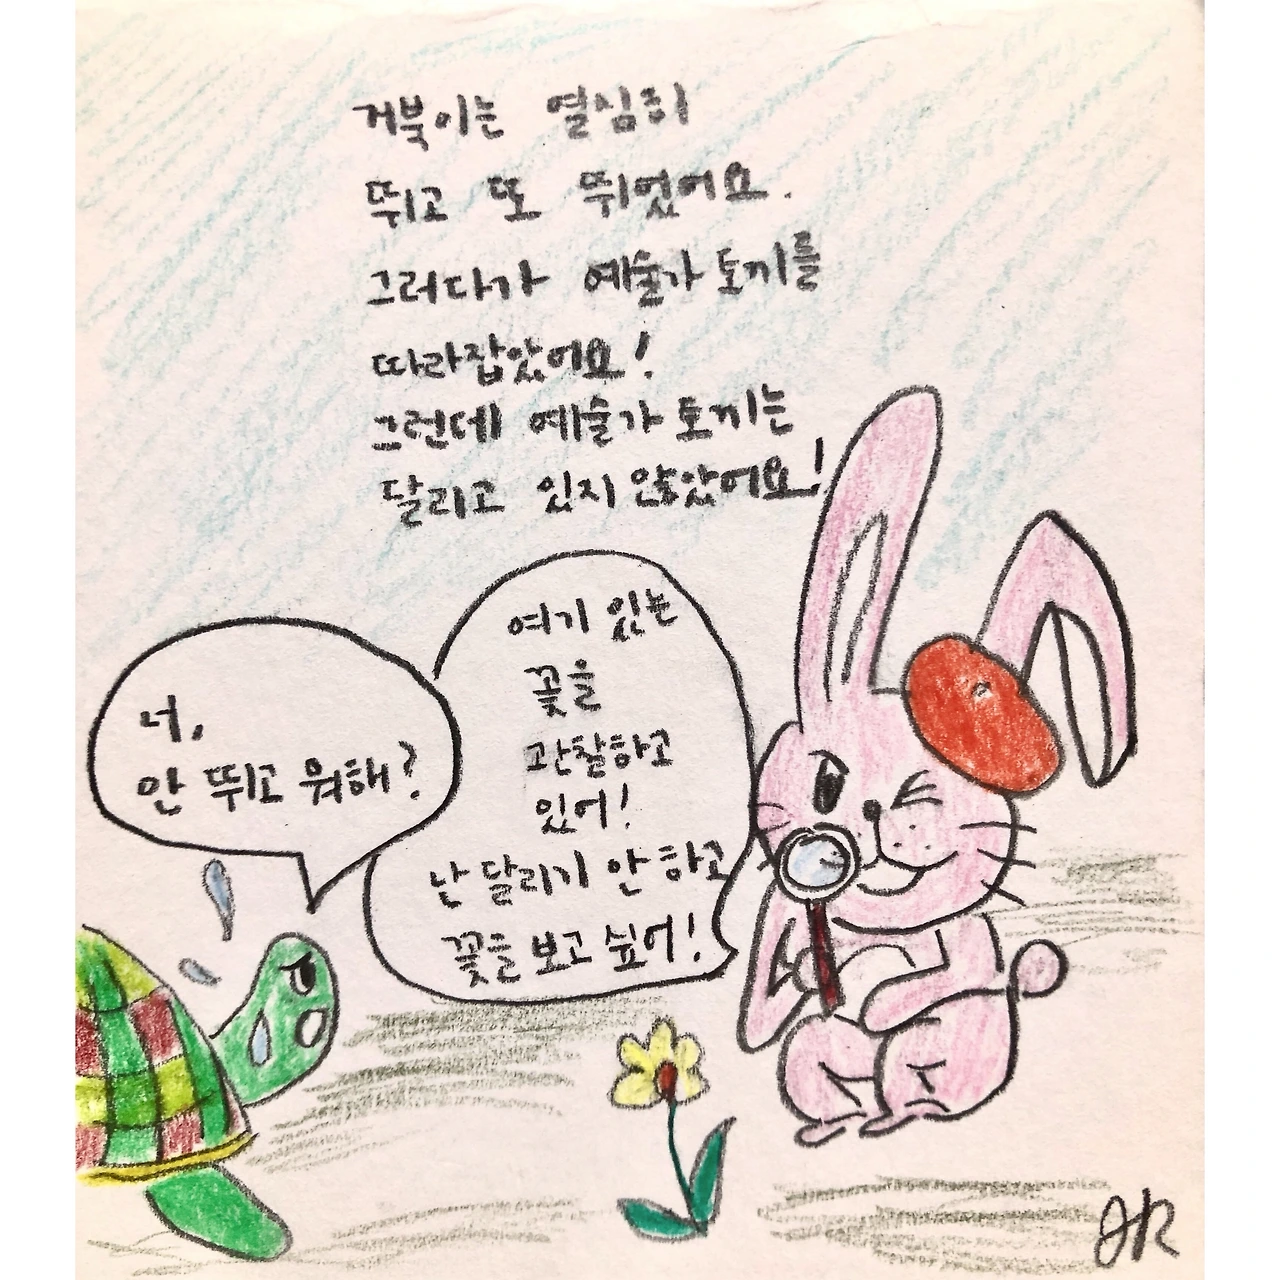 거북이는 열심히
뛰고 또 뛰었어요.
그러다가 예술가 토끼를
따라잡았어요!
그런데 예술가 토끼는
달리고 있지 않았어요!
너,
안 뛰고 뭐해?
여기 있는
꽃을
관찰하고
있어!
난 달리기 안 하고
꽃을 보고 싶어!
JR